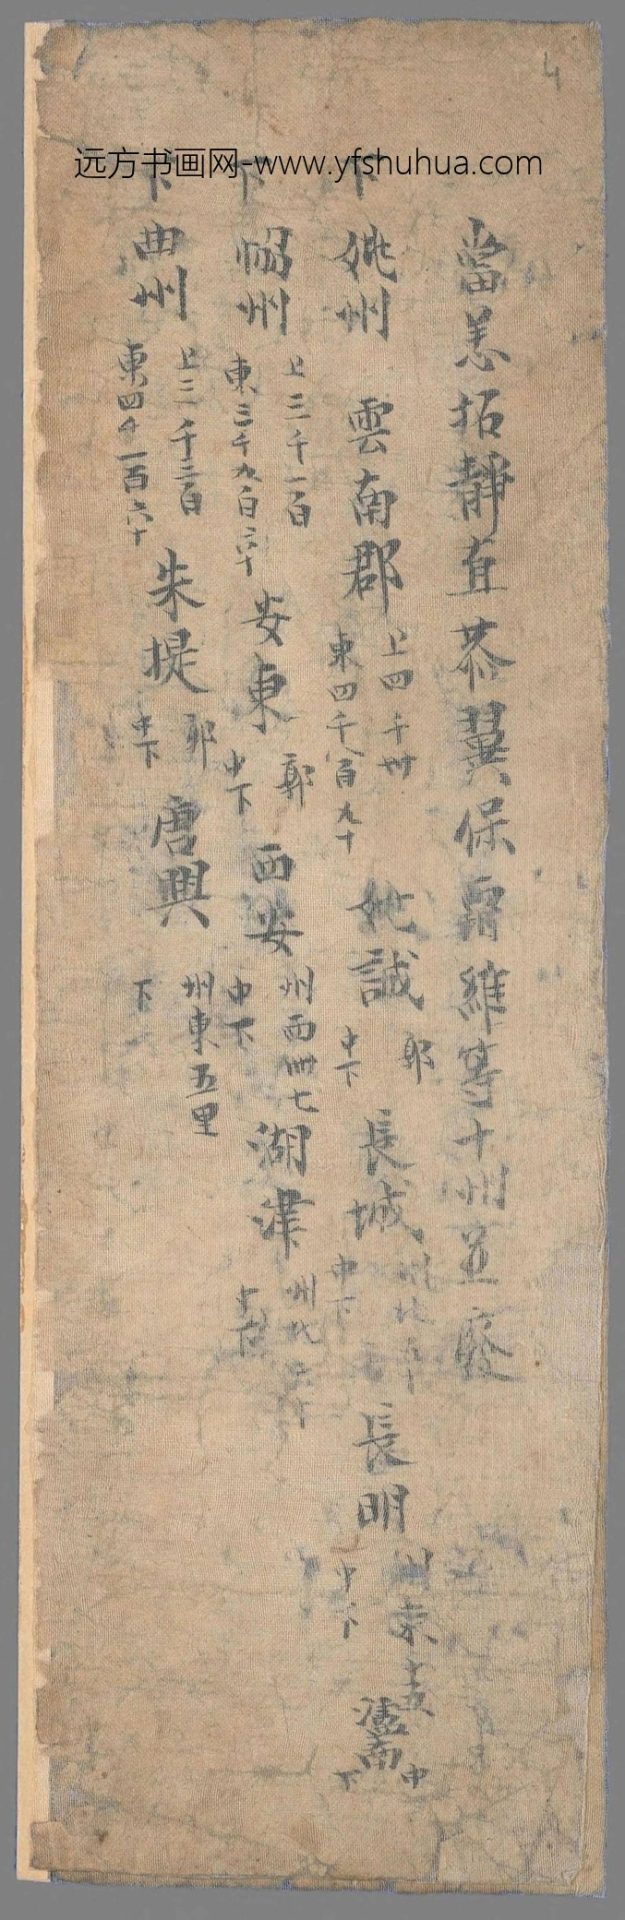 4
远方书画网-www.yfshuhua.com
當恙拓靜直恭翼保霸維等十州並廢
下 姚州 雲南郡 上四千卅 東四千八百九十 姚誠 郭 中下 長城 州北五十 中下 長明 州東十五 中下 瀘南 中下
下 州 上三千一百 東三千九百六十 安東 郭 中下 西安 州西卌七 中下 湖津 州北六十
下 曲州 上三千二百 東四千一百六十 朱提 郭 中下 唐興 州東五里 下